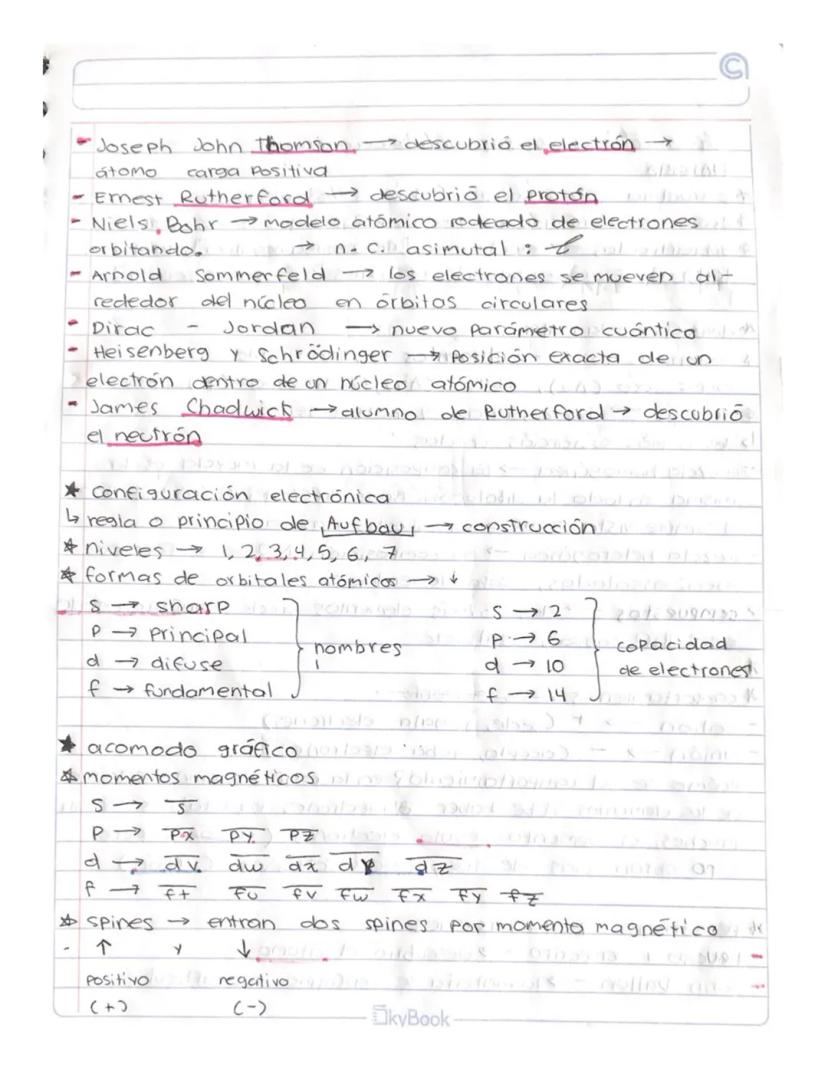 - Joseph John Thomson → descubrió el electrón →
átomo carga positiva
- Ernest Rutherford → descubrió el protón
- Niels Bohr → modelo atómico rodeado de electrones
orbitando. → n. c. asimutal : ℓ
- Arnold Sommerfeld → los electrones se mueven al-
rededor del núcleo en órbitos circulares
- Dirac - Jordan → nuevo parámetro cuántico
- Heisenberg y Schrödinger → Posición exacta de un
electrón dentro de un núcleo atómico
- James Chadwick → alumno de Rutherford → descubrió
el neutrón
★ configuración electrónica
↳ regla o principio de Aufbau → construcción
★ niveles → 1, 2, 3, 4, 5, 6, 7
★ formas de orbitales atómicos → ↓
s → sharp
p → principal
d → difuse
f → fundamental
nombres
s → 2
p → 6
d → 10
f → 14
capacidad
de electrones
★ acomodo gráfico
★ momentos magnéticos
s → s
p → px py pz
d → dv dw dx dy dz
f → ft fu fv fw fx fy fz
★ spines → entran dos spines por momento magnético
- ↑ y ↓
positivo negativo
(+) (-)
SkyBook